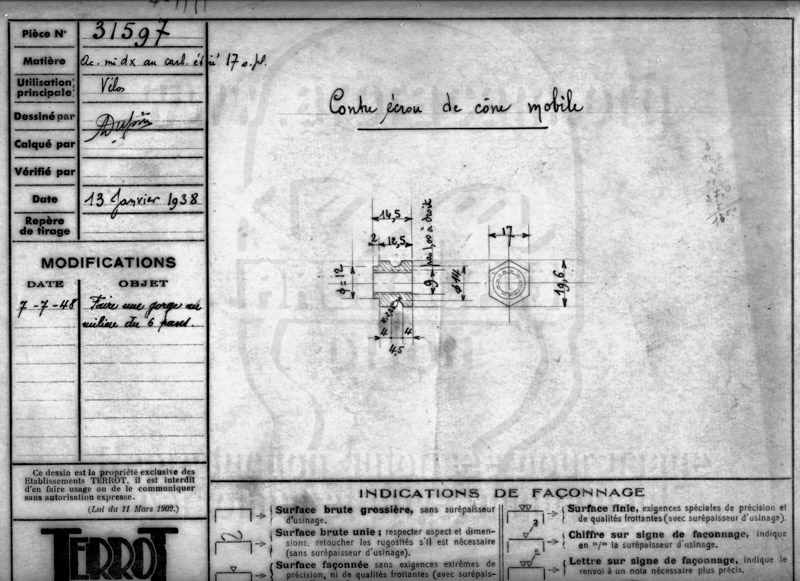 Pièce N° 31597
Matière Ac. mi dx au carb. étiré 17 s. pl.
Utilisation principale Vélos
Dessiné par
Calqué par
Vérifié par
Date 13 Janvier 1938
Repère de tirage
MODIFICATIONS
DATE OBJET
7-7-48 Faire une gorge au
milieu du 6 pans.
Ce dessin est la propriété exclusive des
Etablissements TERROT, il est interdit
d'en faire usage ou de le communiquer
sans autorisation expresse.
(Loi du 11 Mars 1902.)
TERROT
Contre écrou de cône mobile
14,5
2 12,5
pas 1,00 à droite
ϕ=12
9
ϕ14
4 4
4,5
17
19,6
INDICATIONS DE FAÇONNAGE
Surface brute grossière, sans surépaisseur
d'usinage.
Surface brute unie; respecter aspect et dimen-
sions, retoucher les rugosités s'il est nécessaire
(sans surépaisseur d'usinage).
Surface façonnée sans exigences extrêmes de
précision, ni de qualités frottantes (avec surépais-
Surface finie, exigences spéciales de précision et
de qualités frottantes (avec surépaisseur d'usinage).
Chiffre sur signe de façonnage, indique
en m/m la surépaisseur d'usinage.
Lettre sur signe de façonnage, indique le
renvoi à un nota nécessaire plus précis.